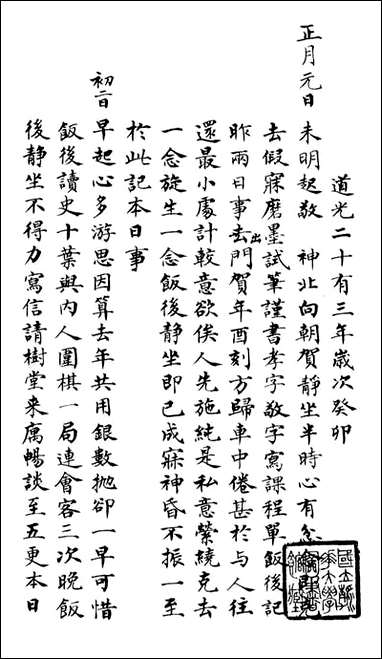 道光二十有三年歲次癸卯
正月元日 未明起敬 神北向朝賀靜坐半時心有
去假寐磨墨試筆謹書孝字敬字寫課程單飯後記
昨兩日事去出門賀年酉刻方歸車中倦甚於与人往
還最小處計較意欲俟人先施純是私意縈繞克去
一念旋生一念飯後靜坐即已成寐神昏不振一至
於此記本日事
初二日 早起心多游思因算去年共用銀數拋卻一早可惜
飯後讀史十葉與內人圍棋一局連會客三次晚飯
後靜坐不得力寫信請樹堂來寓暢談至五更本日